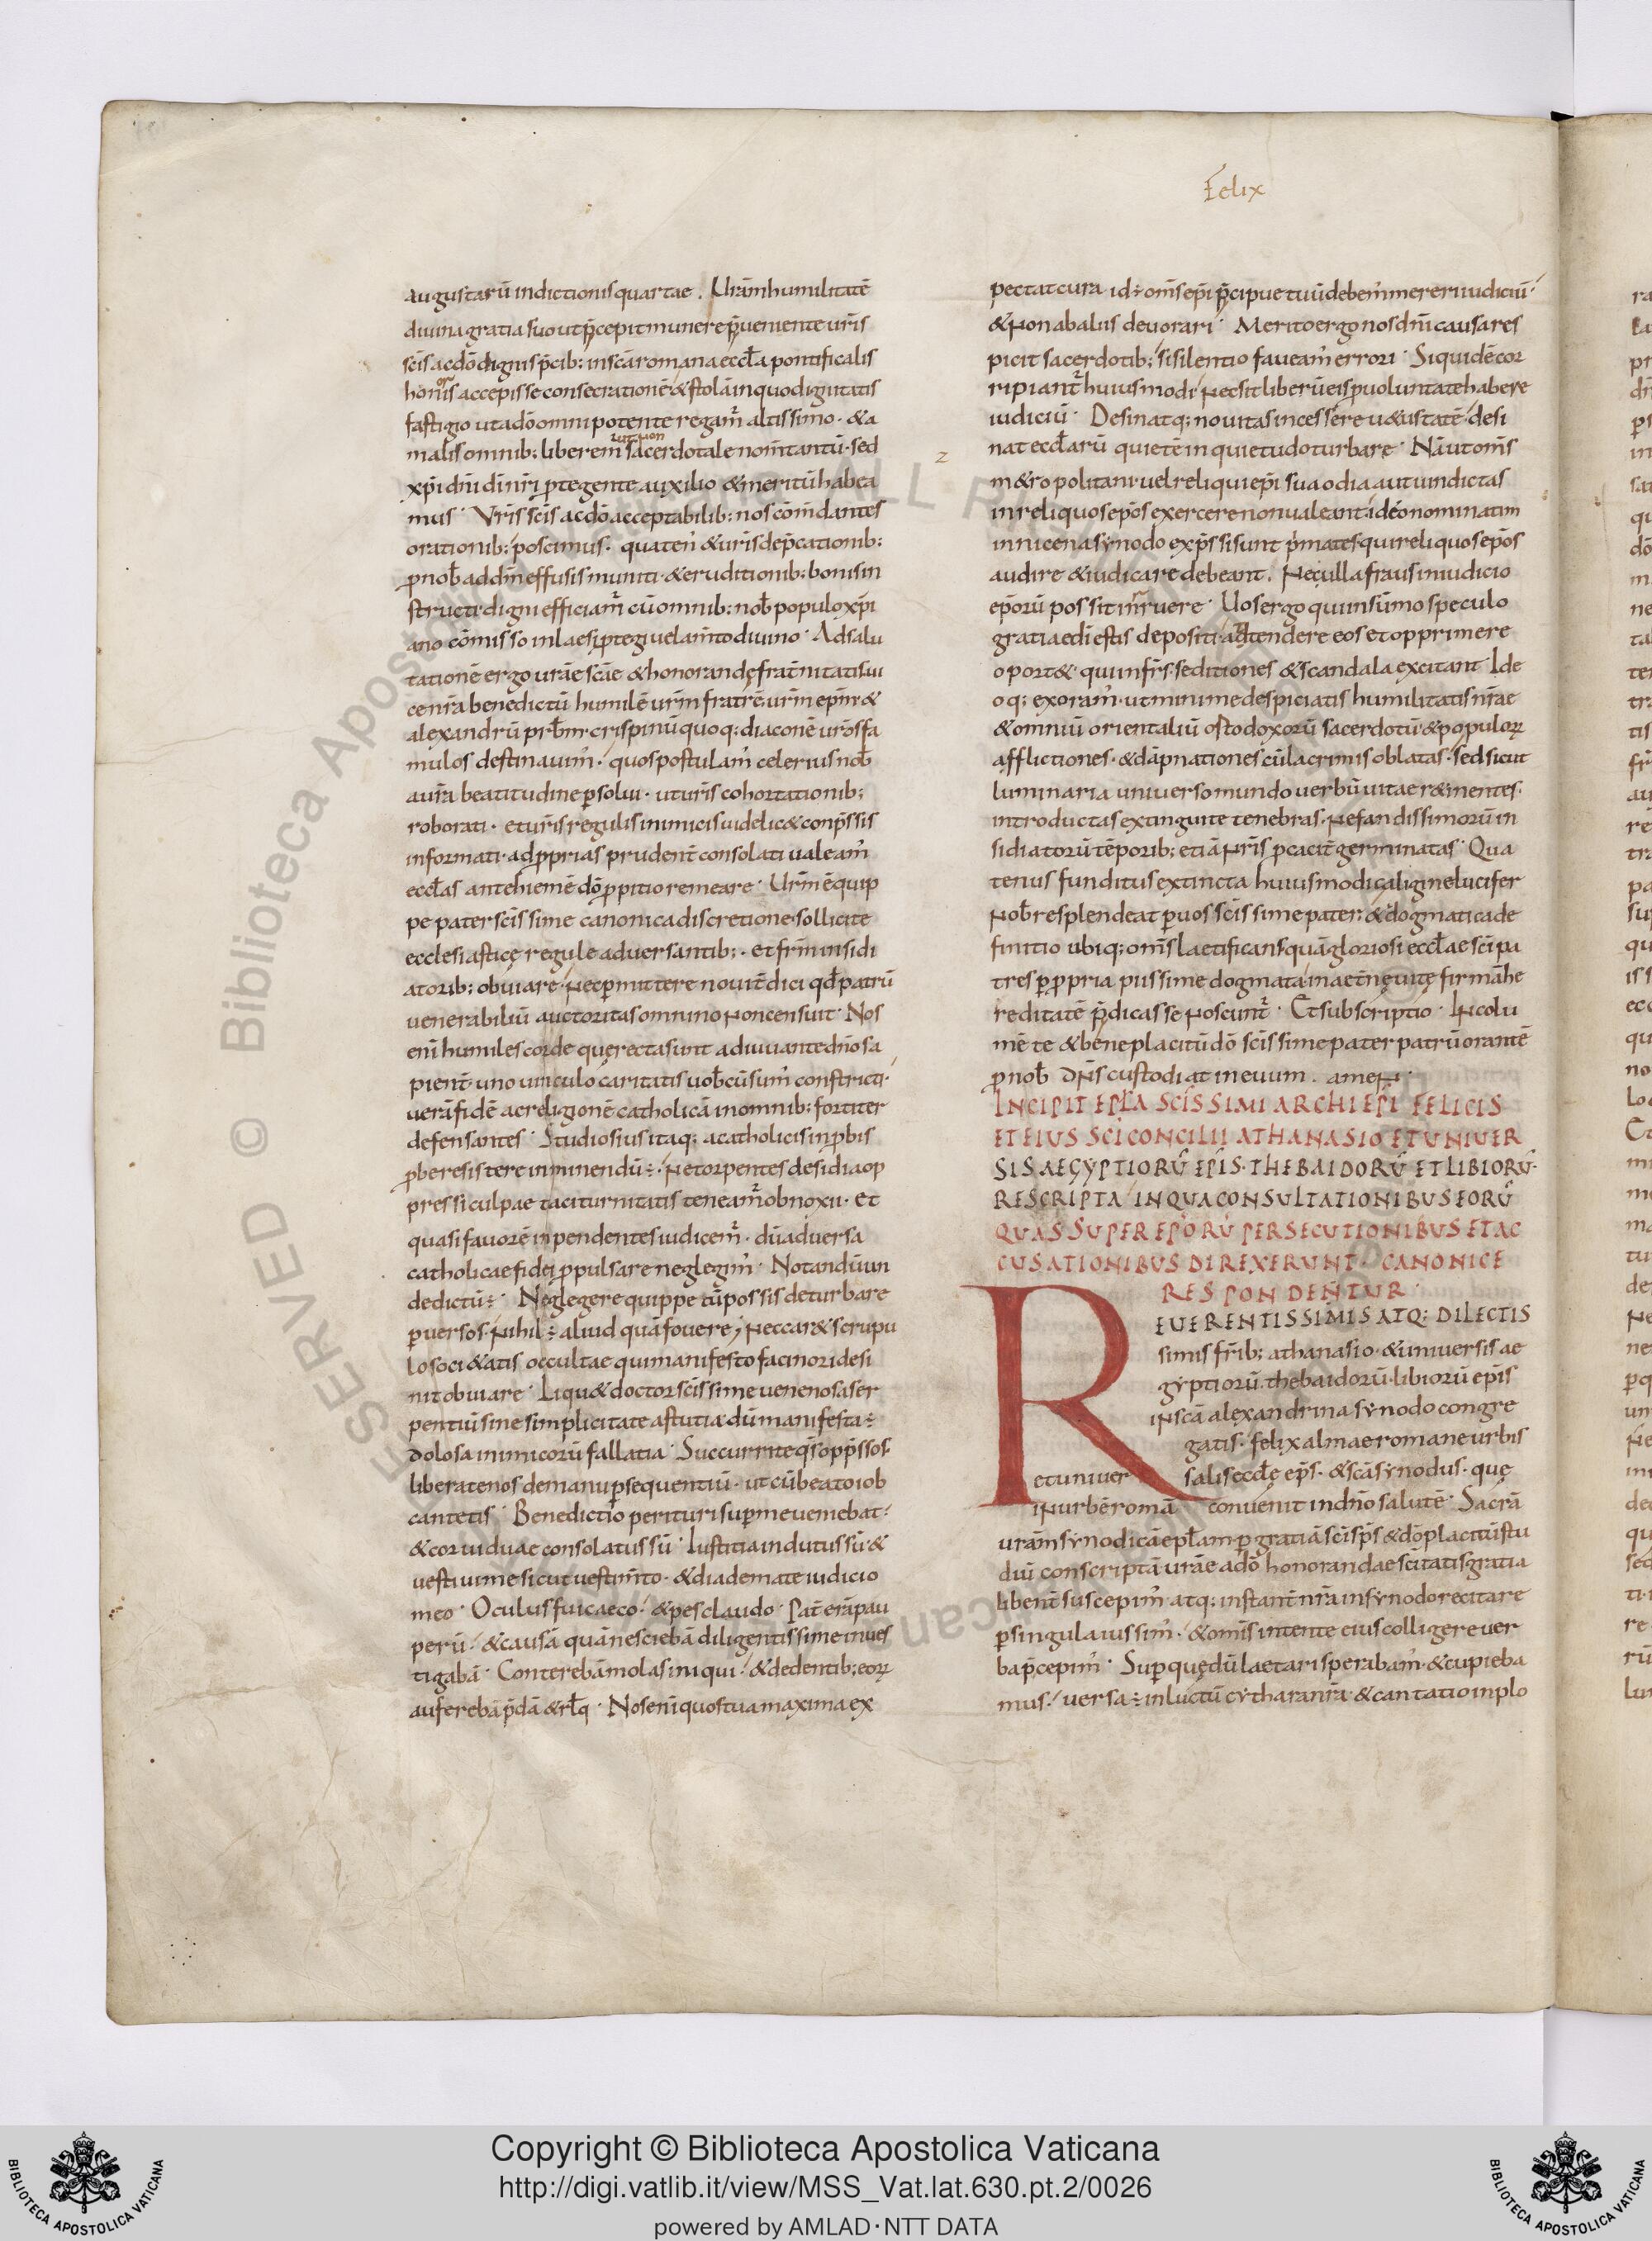 Felix
augustarū indictionis quartae. Urām humilitatē
diuina gratia suo ut p̄cepit munere p̄ueniente urīs
sc̄is ac dō dignis p̄cib; in sc̄a romana eccl̄a pontificalis
honoris accepisse consecrationē & stolā in quo dignitatis
fastigio ut a dō omnipotente regam̄ altissimo · & a
malis omnib; liberem̄ sacerdotale nom̄ tantū · sed
xp̄i dn̄i di nr̄i p̄tegente auxilio & meritū habea
mus · Urīs sc̄is ac dō acceptabilib; nos cōmdantes
orationib; poscimus · quaten̄ & urīs dep̄cationib;
p nob̄ ad dn̄m effusis muniti · & eruditionib; bonis in
structi digni efficiam̄ cū omnib; nob̄ populo xp̄i
ano cōmisso inlaesi p̄tegi uelam̄to diuino · Ad salu
tationē ergo urāe sc̄ae & honorandę frat̄nitatis ui
cem̄ nr̄a benedictū humilē urm̄ fratrē urm̄ ep̄m · &
alexandrū prb̄m · crispinū quoq; diaconē urōs fa
mulos destinauim̄ · quos postulam̄ celerius nob̄
a ur̄a beatitudine p̄solui · ut urīs cohortationib;
roborati · et urīs regulis inimicis uidelic& conp̄ssis
informati · ad p̄prias prudent̄ consolati ualeam̄
eccl̄as ante hiemē dō p̄pitio remeare · Urm̄ ē quip
pe pater sc̄issime canonica discretione · sollicite
ecclesiasticę regulę aduersantib; · et frm̄ insidi
atorib; obuiare · nec p̄mittere nouit̄ dici qd̄ patrū
uenerabiliū auctoritas omnino non censuit · Nos
enī humiles corde quę recta sunt adiuuante dn̄o sa
pient̄ · uno uinculo caritatis uob̄cū sum̄ constricti ·
uerā fidē ac religionē catholicā in omnib; fortiter
defensantes · Studiosius itaq; a catholicis inp̄bis
p̄b& resistere inminendū ÷ · Ne torpentes desidia op
pressi culpae taciturnitatis teneam̄ obnoxii · et
quasi fauorē inpendentes iudicem̄ · dū aduersa
catholicae fidei p̄pulsare neglegim̄ · Notandū un
de dictū ÷ · Neglegere quippe tū possis deturbare
p̄uersos · nihil ÷ aliud quā fouere, nec car& scrupu
lo soci&atis occultae qui manifesto facinori desi
nit obuiare · Liqu& doctor sc̄issime uenenosa ser
pentiū sine simplicitate astutia · dū manifesta ÷
dolosa inimicorū fallatia · Succurrite qs̄ opp̄ssos ·
liberate nos de manu p̄sequentiū · ut cū beato iob
cantetis · Benedictio perituri sup̄ me ueniebat ·
& cor uiduae consolatus sū · Iustitia indutus sū · &
uestiui me sicut uestim̄to · & diademate iudicio
meo · Oculus fui caeco · & pes claudo · Pat̄ erā pau
perū · & causā quā nesciebā diligentissime inues
tigabā · Conterebā molas iniqui · & de dentib; eorꝝ
auferebā p̄dā & rl̄q · Nos enī quos tua maxima ex
pectat cura id ÷ om̄s ep̄i p̄cipue tuū debem̄ mereri iudiciū ·
& non ab aliis deuorari · Merito ergo nos dn̄i causa res
picit sacerdotib; si silentio faueam̄ errori · Siquidē cor
ripiant̄ huiusmodi · nec sit liberū eis p̄ uoluntate habere
iudiciū · Desinatq; nouitas incessere u&ustatē · desi
nat eccl̄arū quietē inquietudo turbare · Nā ut om̄s
m&ropolitani uel reliqui ep̄i sua odia aut uindictas
in reliquos ep̄os exercere non ualeant · ideo nominatim
in nicena synodo exp̄ssi sunt p̄mates qui reliquos ep̄os
audire & iudicare debeant. Nec ulla fraus in iudicio
ep̄orū possit inruere · Uos ergo qui in sūmo speculo
gratia ed̄i estis depositi · adtendere eos et opprimere
oport& · qui in fr̄s seditiones & scandala excitant · Ide
oq; exoram̄ · ut minime despiciatis humilitatis nr̄ae
& omniū orientaliū ostodoxorū sacerdotū · & populorꝝ
afflictiones · & dāpnationes cū lacrimis oblatas · sed sicut
luminaria uniuerso mundo uerbū uitae r&inentes ·
introductas extinguite tenebras · Nefandissimorū in
sidiatorū tēporib; etiā nr̄is p̄cacit̄ germinatas · Qua
tenus funditus extincta huiusmodi caligine lucifer
nob̄ resplendeat p̄ uos sc̄issime pater · & dogmatica de
finitio ubiq; om̄s laetificans quā gloriosi eccl̄ae sc̄i pa
tres p̄ p̄pria piissime dogmata in aet̄nę uitę firmā he
reditatē p̄dicasse noscunt̄ · Et subscriptio · Incolu
mē te & beneplacitū dō sc̄issime pater patrū orantē
p nob̄ dn̄s custodiat in euum. amen ·
INCIPIT EPLA SCISSIMI ARCHIEPI FELICIS
ET EIUS SCI CONCILII ATHANASIO ET UNIUER
SIS AEGYPTIORŪ EPIS · THEBAIDORŪ ET LIBIORŪ ·
RESCRIPTA IN QUA CONSULTATIONIBUS EORŪ
QUAS SUPER EPORŪ PERSECUTIONIBUS ET AC
CUSATIONIBUS DIREXERUNT · CANONICE
RESPONDENTUR ·
REUERENTISSIMIS ATQ; DILECTIS
simis fr̄ib; athanasio · & uniuersis ae
gyptiorū · thebaidorū · libiorū ep̄is
in sc̄a alexandrina synodo congre
gatis · felix almae romane urbis
et uniuersalis eccl̄ę ep̄s · & sc̄a synodus · quę
in urbē romā conuenit in dn̄o salutē · Sacrā
urām synodicā epl̄am p̄ gratiā sc̄i sp̄s & dō placitū stu
diū conscriptā urāe a dō honorandae sc̄itatis gratia
libent̄ suscepim̄ atq; instant̄ nr̄a in synodo recitare
p̄ singula iussim̄ · & om̄s intente eius colligere uer
ba p̄cepim̄ · Sup̄ quę dū laetari sperabam̄ · & cupieba
mus · uersa ÷ in luctū cythara nr̄a · & cantatio in plo
Copyright © Biblioteca Apostolica Vaticana
http://digi.vatlib.it/view/MSS_Vat.lat.630.pt.2/0026
powered by AMLAD·NTT DATA
BIBLIOTECA APOSTOLICA VATICANA
BIBLIOTECA APOSTOLICA VATICANA